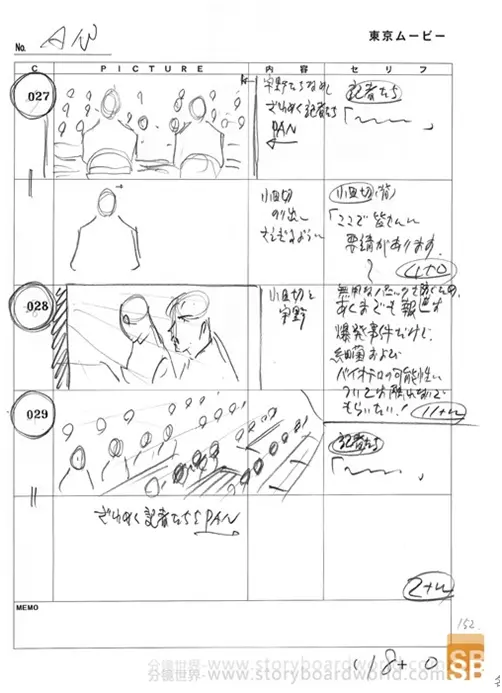 No. AN
東京ムービー
C PICTURE 内容 セリフ
027
宇野たちなめ
ざわめく記者たち
PAN
記者たち
「〜〜。」
小田切
のり出し
さえぎるように
小田切(背)
「ここで皆さんに
要請があります。
4+0
028
小田切と
宇野
あくまでも報道は
爆発事件だけで、
細菌および
バイオテロの可能性に
ついては触れないで
もらいたい!
11+12
029
記者たち
「〜〜。」
ざわめく記者たちPAN
2+12
MEMO
152
118+0
分镜世界-www.storyboardworld.com
分镜世界-www.storyboardworld.com
SB